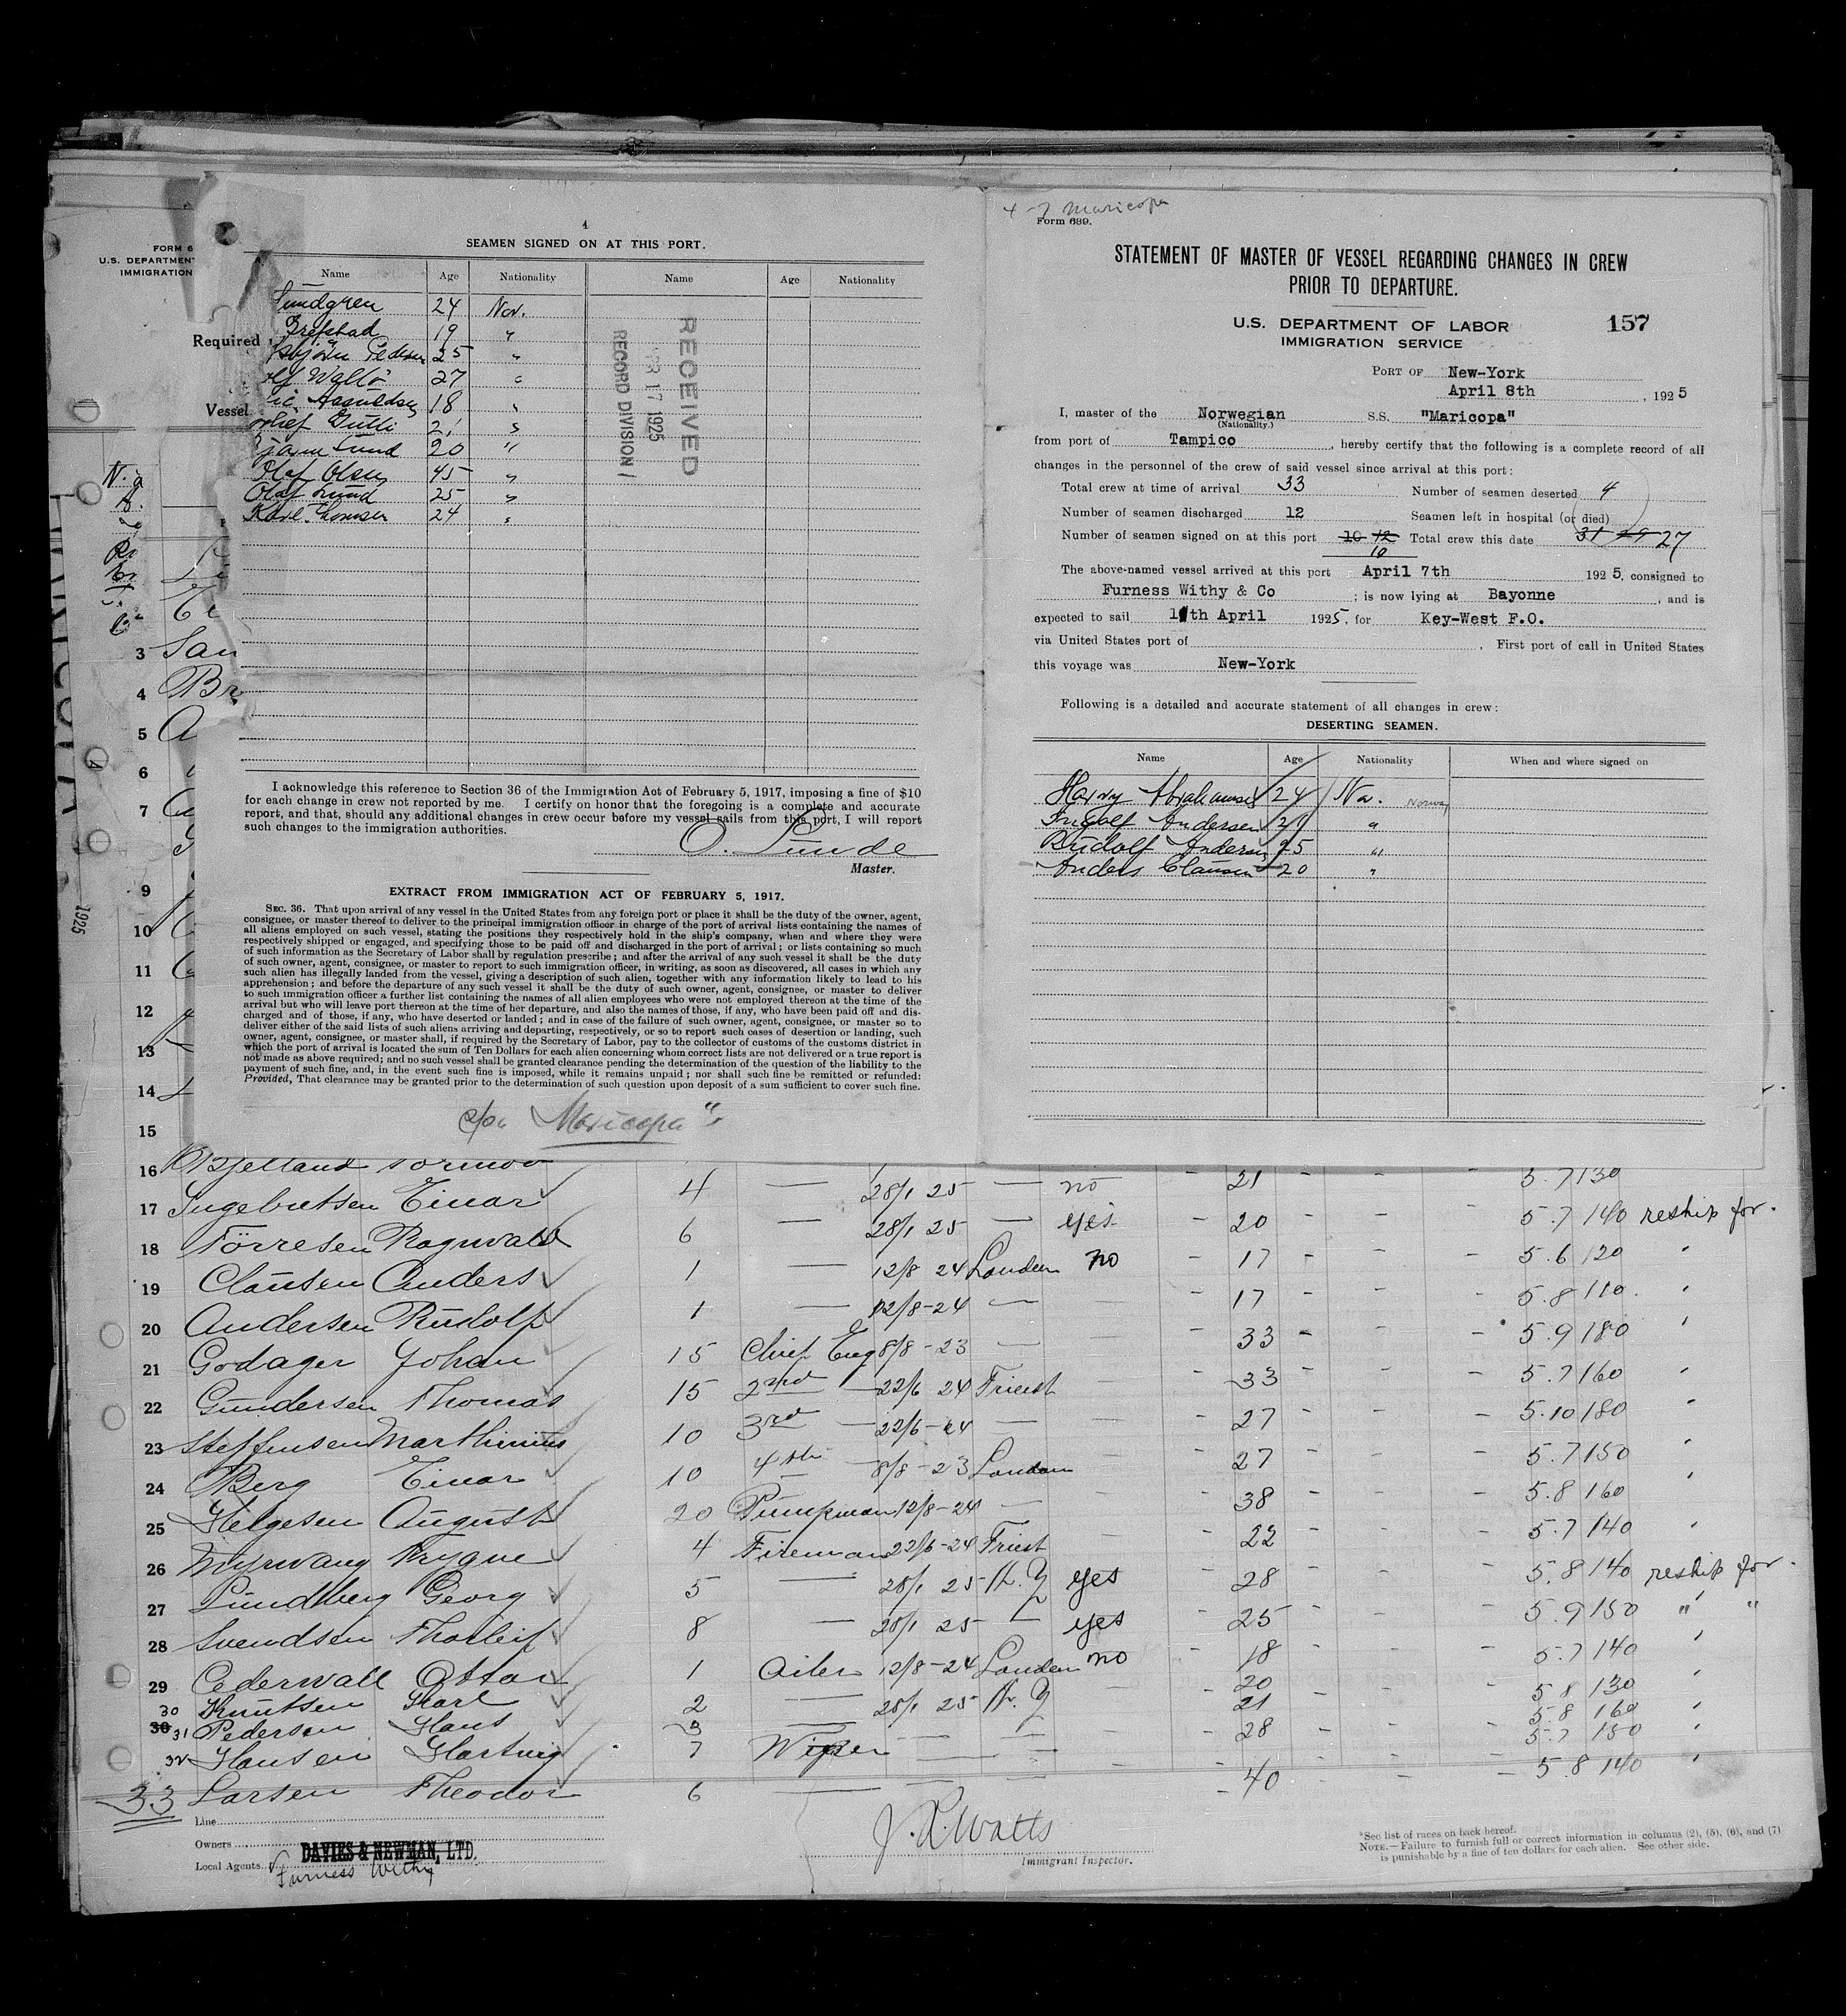 FORM 6
U.S. DEPARTMENT
IMMIGRATION
Required
Vessel
3 San
4 Br
5
6
7
9
10
11
12
13
14
15
1925
4
SEAMEN SIGNED ON AT THIS PORT.
Name Age Nationality Name Age Nationality
Lundgren 24 Nor.
Grefstad 19 "
Pedersen 25 "
27 "
18 "
21 "
Lund 20 "
Olaf Olsen 45 "
Olaf Lund 25 "
Karl Thomsen 24 "
RECEIVED
APR 17 1925
RECORD DIVISION
I acknowledge this reference to Section 36 of the Immigration Act of February 5, 1917, imposing a fine of $10
for each change in crew not reported by me. I certify on honor that the foregoing is a complete and accurate
report, and that, should any additional changes in crew occur before my vessel sails from this port, I will report
such changes to the immigration authorities.
O. Lunde
Master.
EXTRACT FROM IMMIGRATION ACT OF FEBRUARY 5, 1917.
SEC. 36. That upon arrival of any vessel in the United States from any foreign port or place it shall be the duty of the owner, agent,
consignee, or master thereof to deliver to the principal immigration officer in charge of the port of arrival lists containing the names of
all aliens employed on such vessel, stating the positions they respectively hold in the ship's company, when and where they were
respectively shipped or engaged, and specifying those to be paid off and discharged in the port of arrival; or lists containing so much
of such information as the Secretary of Labor shall by regulation prescribe; and after the arrival of any such vessel it shall be the duty
of such owner, agent, consignee, or master to report to such immigration officer, in writing, as soon as discovered, all cases in which any
such alien has illegally landed from the vessel, giving a description of such alien, together with any information likely to lead to his
apprehension; and before the departure of any such vessel it shall be the duty of such owner, agent, consignee, or master to deliver
to such immigration officer a further list containing the names of all alien employees who were not employed thereon at the time of the
arrival but who will leave port thereon at the time of her departure, and also the names of those, if any, who have been paid off and dis-
charged and of those, if any, who have deserted or landed; and in case of the failure of such owner, agent, consignee, or master so to
deliver either of the said lists of such aliens arriving and departing, respectively, or so to report such cases of desertion or landing, such
owner, agent, consignee, or master shall, if required by the Secretary of Labor, pay to the collector of customs of the customs district in
which the port of arrival is located the sum of Ten Dollars for each alien concerning whom correct lists are not delivered or a true report is
not made as above required; and no such vessel shall be granted clearance pending the determination of the question of the liability to the
payment of such fine, and, in the event such fine is imposed, while it remains unpaid; nor shall such fine be remitted or refunded:
Provided, That clearance may be granted prior to the determination of such question upon deposit of a sum sufficient to cover such fine.
"Maricopa"
4-7 Maricopa
Form 689.
STATEMENT OF MASTER OF VESSEL REGARDING CHANGES IN CREW
PRIOR TO DEPARTURE.
U.S. DEPARTMENT OF LABOR
IMMIGRATION SERVICE
157
PORT OF New-York
April 8th, 1925
I, master of the Norwegian S.S. "Maricopa"
(Nationality.)
from port of Tampico, hereby certify that the following is a complete record of all
changes in the personnel of the crew of said vessel since arrival at this port:
Total crew at time of arrival 33 Number of seamen deserted 4
Number of seamen discharged 12 Seamen left in hospital (or died)
Number of seamen signed on at this port 10 12 10 Total crew this date 31 29 27
The above-named vessel arrived at this port April 7th 1925, consigned to
Furness Withy & Co; is now lying at Bayonne, and is
expected to sail 11th April 1925, for Key-West F.O.
via United States port of . First port of call in United States
this voyage was New-York
Following is a detailed and accurate statement of all changes in crew:
DESERTING SEAMEN.
Name Age Nationality When and where signed on
Harry Abrahamsen 24 Nor. Norway
Ingolf Andersen 21 "
Rudolf Andersen 25 "
Anders Clausen 20 "
16 Bjelland Tormod 4 — 28/1 25 — no - 21 - - - 5.7 130
17 Ingebretsen Einar 6 — 28/1 25 — yes - 20 - - - 5.7 140 reship for.
18 Törresen Ragnvald 1 — 12/8 24 London no - 17 - - - 5.6 120 "
19 Clausen Anders 1 — 12/8-24 — - 17 - - - 5.8 110 "
20 Andersen Rudolf
21 Godager Johan 15 Chief Eng 8/8-23 — 33 - - - 5.9 180 "
22 Gundersen Thomas 15 2nd — 22/6 24 Triest - 33 - - - 5.7 160 "
23 Steffensen Marthinius 10 3rd — 22/6-24 — 27 - - - 5.10 180 "
24 Berg Einar 10 4th — 8/8-23 London 27 - - - 5.7 150 "
25 Helgesen August 20 Pumpman 12/8-24 — 38 - - - 5.8 160 "
26 Myrwang Trygve 4 Fireman 22/6-24 Triest - 22 - - - 5.7 140 "
27 Lundberg Georg 5 — 28/1 25 N.Y yes - 28 - - - 5.8 140 reship for.
28 Svendsen Thorleif 8 — 28/1 25 — yes - 25 - - - 5.9 150 " "
29 Cederwall Ottar 1 Oiler 12/8-24 London no - 18 - - - 5.7 140 "
30 Knutsen Karl 2 — 28/1 25 N.Y - 20 - - - 5.8 130
30 31 Pedersen Hans 3 — 21 5.8 160 "
32 Hansen Hartvig 7 Wiper — 28 - - - 5.7 150 "
33 Larsen Theodor 6 — - 40 - - - 5.8 140 "
Line
Owners DAVIES & NEWMAN, LTD.
Local Agents Furness Withy
J. R. Watts
Immigrant Inspector.
*See list of races on back hereof.
NOTE.—Failure to furnish full or correct information in columns (2), (5), (6), and (7)
is punishable by a fine of ten dollars for each alien. See other side.